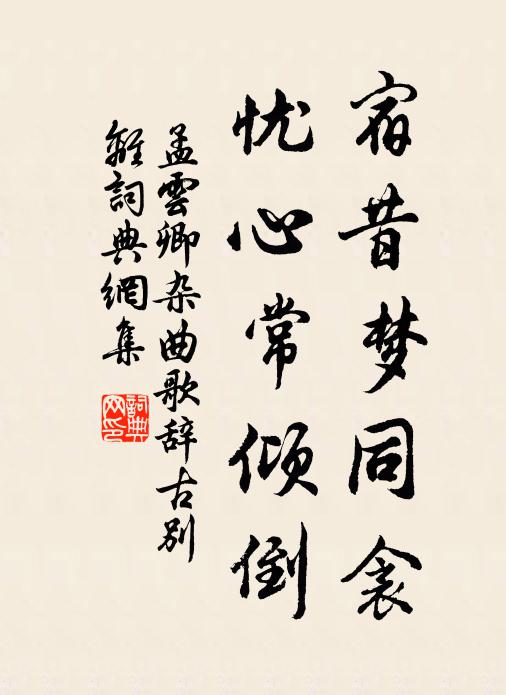 宿昔梦同衾
忧心常倾倒
孟雲卿杂曲歌辞古别
離詞典網集
詞典网印